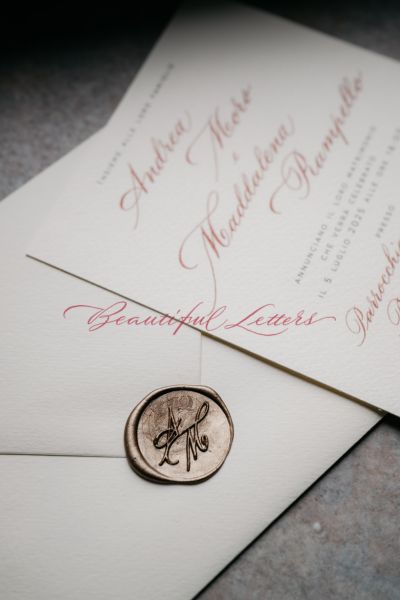 INSIEME ALLE LORO FAMIGLIE
Andrea
Moro
&
Maddalena
Rampello
ANNUNCIANO IL LORO MATRIMONIO
CHE VERRÀ CELEBRATO
IL 5 LUGLIO 2025 ALLE ORE 16:00
PRESSO
Parrocchia
Beautiful Letters
A & M